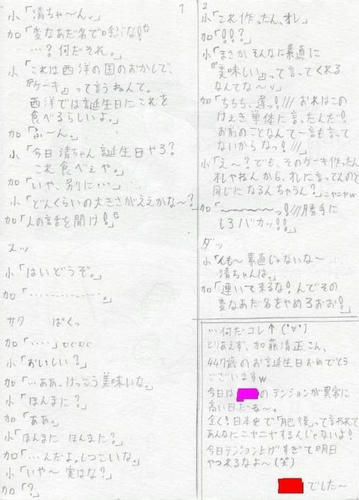 1
小「清ちゃーん。」
加「変なあだ名で呼ぶな!
…?何だそれ。」
小「これは西洋の国のおかしで、
『ケーキ』って言うねんて。
西洋では誕生日にこれを
食べるらしいよ。」
加「ふーん。」
小「今日清ちゃん誕生日やろ?
これ食べぇや。」
加「いや、別に…」
小「どんくらいの大きさがええかな~?」
加「人の話を聞け!」
スッ
小「はいどうぞ。」
加「…………。」
サク ぱくっ
加「……」
小「おいしい?」
加「…あぁ。けっこう美味いな。」
小「ほんまに?」
加「ああ。」
小「ほんまに ほんまに?」
加「…んだよ。しつこいな。」
小「いや~実はな?」
加「?」
2
小「これ作ったん、オレ」
加「!!?」
小「まさかそんなに素直に
『美味い』って言ってくれる
なんてな~」
加「ちちち、違っ!///おれはこの
けえき単体に言ったんだ!
お前のことなんて一言も言って
ないからなっ!///」
小「え~?でも、そのケーキ作ったん
オレやねんから、オレに言ってんのと
同じになるんちゃうん?」ニヤニヤ
加「~~~~~っ!///勝手に
しろバカッ!!」
ダッ
小「んも~素直じゃないな~
清ちゃんは。」
加「連いて来るな!んでその
変なあだ名をやめろぉお!」
…何だコレ↑(°∀°)
とりあえず、加藤清正さん、
447歳のお誕生日おめでとう
ございますw
今日は
のテンションが異常に
高い日だな~。
全く!日本史で「肥後」って言われて
あんなにニヤニヤする人いないよ!
今日テンション上がりすぎて明日
やつれるなよ~(笑)
でした~